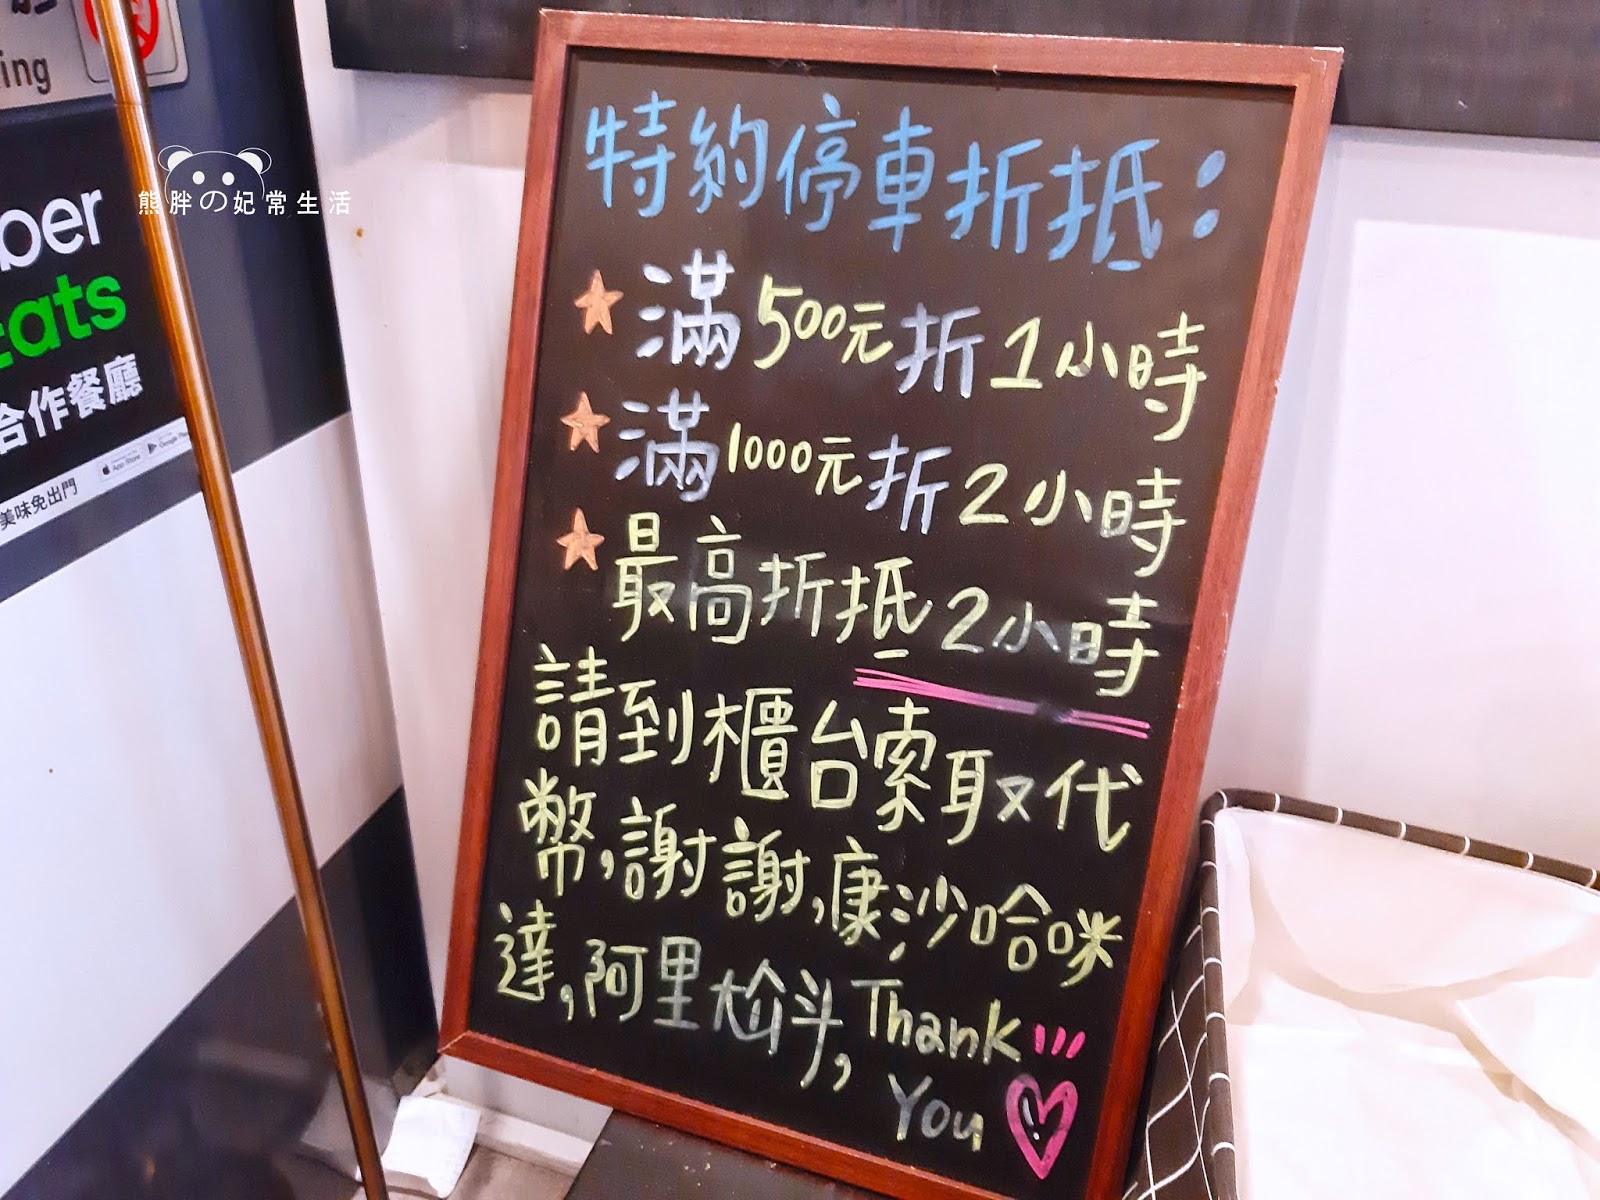 ing
熊胖の妃常生活
ber
eats
合作餐廳
App Store
Google Play
美味免出門
特約停車折抵：
滿500元折1小時
滿1000元折2小時
最高折抵2小時
請到櫃台索取代
幣,謝謝,康沙哈咪
達,阿里尬斗,Thank
You